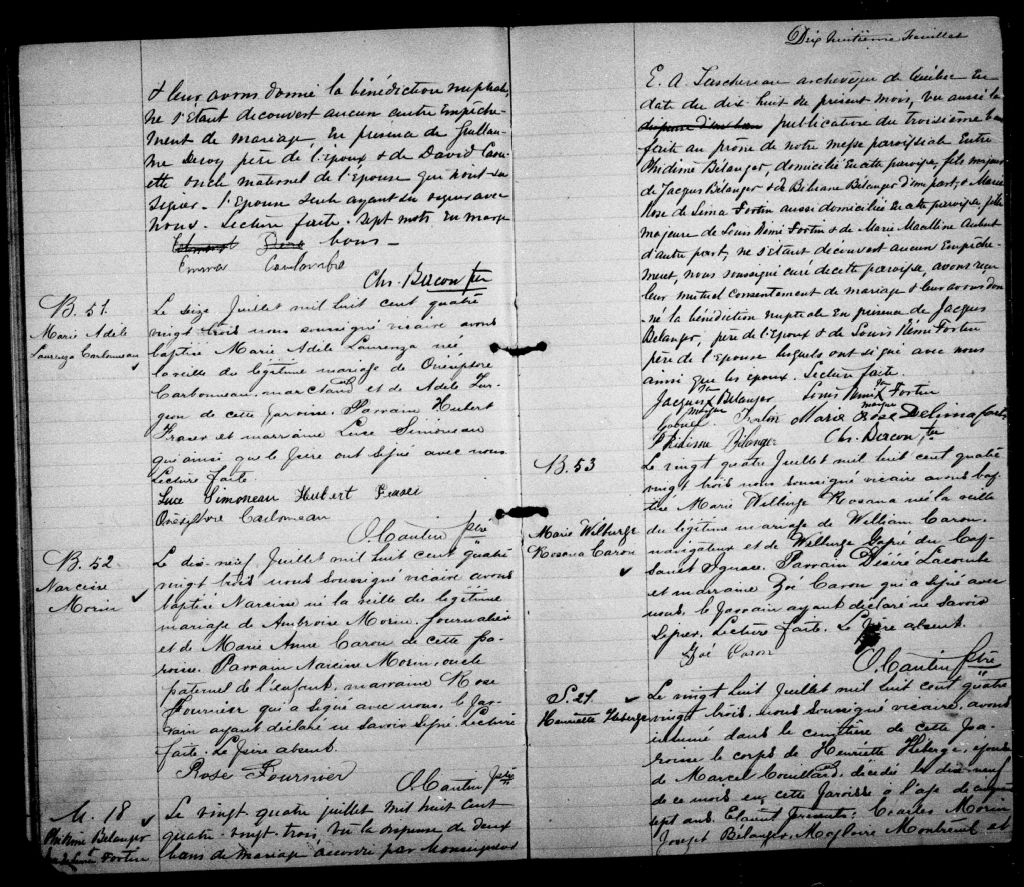 & leur avons donné la bénédiction nuptiale,
ne s'étant découvert aucun autre empêche-
ment de mariage. En présence de Guillau-
me père de l'époux & de David Caou-
ette oncle maternel de l'épouse qui n'ont su
signer. L'épouse seule ayant su signer avec
nous. Lecture faite. Sept mots en marge
bons —
Emma Coulombe
Chs. Bacon ptre
B. 51.
Marie Adèle
Laurenza Carbonneau
Le seize Juillet mil huit cent quatre
vingt trois nous soussigné vicaire avons
baptisé Marie Adèle Laurenza née
la veille du légitime mariage de Onésiphore
Carbonneau, marchand et de Adèle Tur-
geon de cette paroisse. Parrain Hubert
Fraser et marraine Luce Simoneau
qui ainsi que le père ont signé avec nous
Lecture faite
Luce Simoneau Hubert Fraser
Onésiphore Carbonneau
O. Cantin ptre
B. 52
Narcisse
Morin
Le dix-neuf Juillet mil huit cent quatre
vingt trois nous soussigné vicaire avons
baptisé Narcisse né la veille du légitime
mariage de Ambroise Morin, journalier
et de Marie Anne Caron de cette pa-
roisse. Parrain Narcisse Morin, oncle
paternel de l'enfant, marraine Rose
Fournier qui a signé avec nous, le par-
rain ayant déclaré ne savoir signer. Lecture
faite. Le père absent.
Rose Fournier
O. Cantin ptre
M. 18
Phidime Bélanger
Fortin
Le vingt quatre juillet mil huit cent
quatre-vingt-trois, vu la dispense de deux
bans de mariage accordée par Monseigneur
Dix huitième Feuillet
E. A. Taschereau archevêque de Québec en
date du dix huit du présent mois, vu aussi la
publication du troisième ban
faite au prône de notre messe paroissiale entre
Phidime Bélanger, domicilié en cette paroisse, fils majeur
de Jacques Bélanger & de Bibiane Bélanger d'une part, & Marie
Rose de Lima Fortin aussi domiciliée en cette paroisse, fille
majeure de Louis Rémi Fortin & de Marie Aubut
d'autre part, ne s'étant découvert aucun empêche-
ment, nous soussigné curé de cette paroisse, avons reçu
leur mutuel consentement de mariage & leur avons don-
né la bénédiction nuptiale en présence de Jacques
Bélanger, père de l'époux & de Louis Rémi Fortin
père de l'épouse lesquels ont signé avec nous
ainsi que les époux. Lecture faite.
Jacques sa X marque Bélanger Louis Rémi sa X marque Fortin
Marie Rose Delima Fortin
Phidime Bélanger Chs. Bacon ptre
B. 53
Marie Wilburge
Rosana Caron
Le vingt quatre Juillet mil huit cent quatre
vingt trois nous soussigné vicaire avons bap-
tisé Marie Wilburge Rosana née la veille
du légitime mariage de William Caron,
navigateur et de Wilburge du Cap-
saint Ignace. Parrain Désiré Lacombe
et marraine Zoé Caron qui a signé avec
nous, le parrain ayant déclaré ne savoir
signer. Lecture faite. Le père absent.
Zoé Caron
O. Cantin ptre
S. 27
Henriette Heberge
Le vingt huit Juillet mil huit cent quatre
vingt trois, nous soussigné vicaire, avons
inhumé dans le cimetière de cette pa-
roisse le corps de Henriette Heberge, épouse
de Marcel Couillard, décédée le dix neuf
de ce mois en cette paroisse à l'âge de
sept ans. Étaient présents: Charles Morin
Joseph Bélanger, Magloire Montreuil et